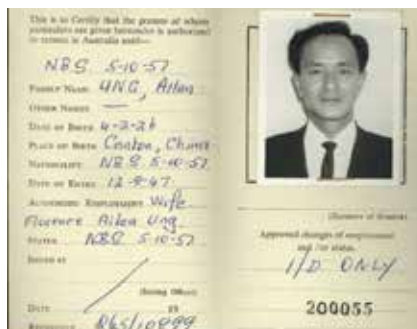 This is to Certify that the person of whom
particulars are given hereunder is authorized
to remain in Australia until—
NBS 5-10-57
FAMILY NAME UNG, Allan
OTHER NAMES —
DATE OF BIRTH 4-2-26
PLACE OF BIRTH Canton, China
NATIONALITY NBS 5-10-57
DATE OF ENTRY 12-9-47
AUTHORIZED EMPLOYMENT Wife
Florence Aileen Ung
STATUS NBS 5-10-57
ISSUED AT
(Issuing Officer)
DATE 19
REFERENCE
(Signature of Grantee)
Approved changes of employment
and/or status.
I/D ONLY
200055